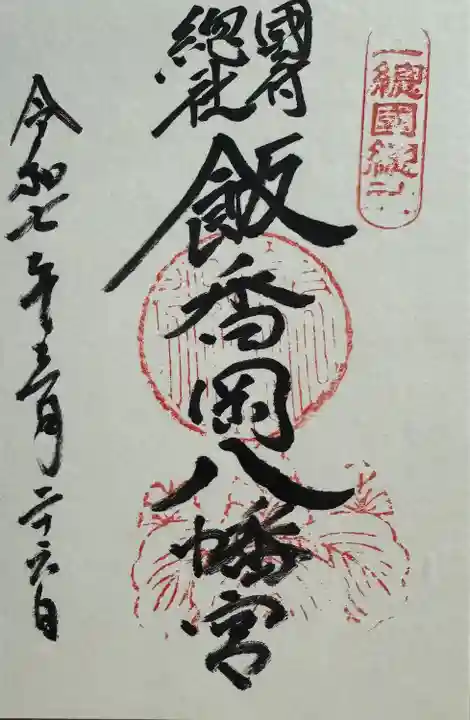 一總國總社
國府
總社
飯香岡八幡宮
令和七年三月二十六日